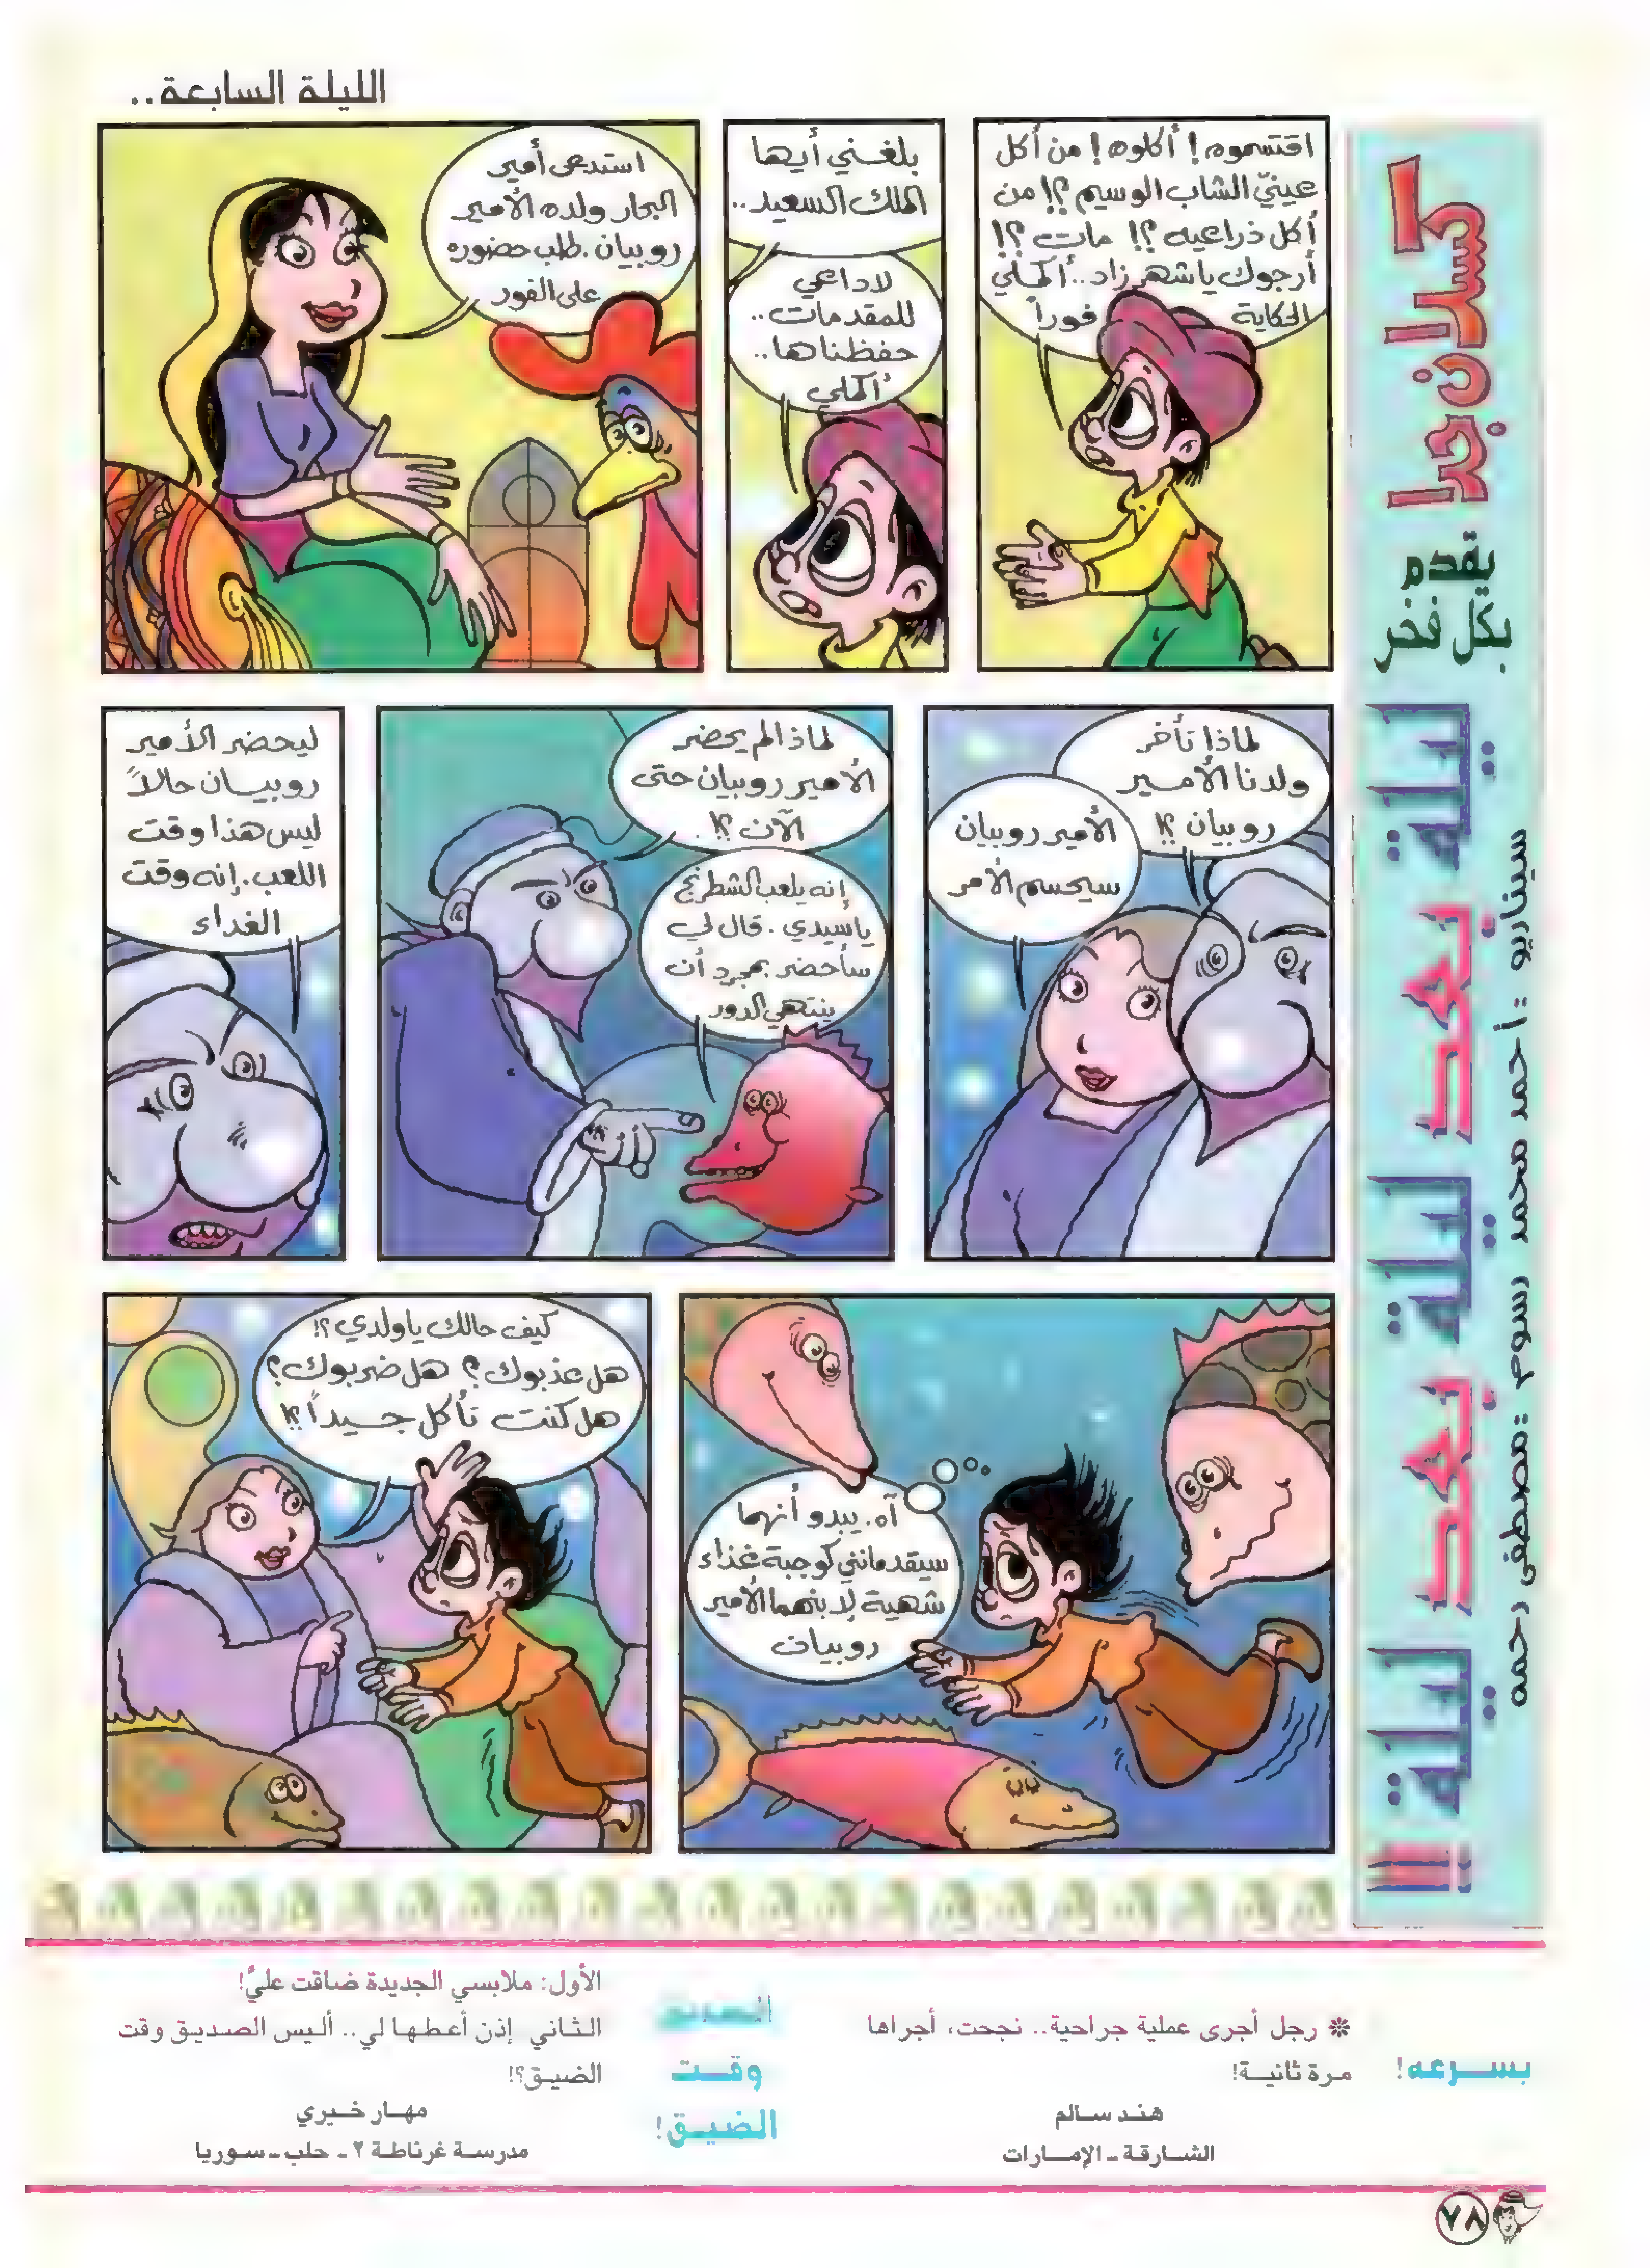 الليلة السابعة..
كسلان جدا
يقدم
بكل فخر
ليلة بعد ليلة بعد ليلة !!
سيناريو : أحمد محمد رسوم : مصطفى رحمه
اقتسموه! أكلوه! من أكل
عينيّ الشاب الوسيم ؟! من
أكل ذراعيه ؟! مات ؟!
أرجوك يا شهرزاد.. أكملي
الحكاية
فوراً
بلغني أيها
الملك السعيد..
لا داعي
للمقدمات..
حفظناها..
أكملي
استدعى أمير
البحار ولده الأمير
روبيان. طلب حضوره
على الفور
لماذا تأخر
ولدنا الأمير
روبيان ؟!
الأمير روبيان
سيحسم الأمر
لماذا لم يحضر
الأمير روبيان حتى
الآن ؟!
إنه يلعب الشطرنج
يا سيدي. قال لي
سأحضر بمجرد أن
ينتهي الدور
ليحضر الأمير
روبيان حالاً
ليس هذا وقت
اللعب. إنه وقت
الغداء
آه. يبدو أنهما
سيقدمانني كوجبة غذاء
شهية لابنهما الأمير
روبيان
كيف حالك يا ولدي ؟!
هل عذبوك ؟ هل ضربوك ؟
هل كنت تأكل جيداً ؟!
بسرعه!
❊ رجل أجرى عملية جراحية.. نجحت، أجراها
مرة ثانية!
هند سالم
الشارقة - الإمارات
الصديق
وقت
الضيق!
الأول: ملابسي الجديدة ضاقت عليّ!
الثاني إذن أعطها لي.. أليس الصديق وقت
الضيق؟!
مهار خيري
مدرسة غرناطة ٢ - حلب - سوريا
٧٨